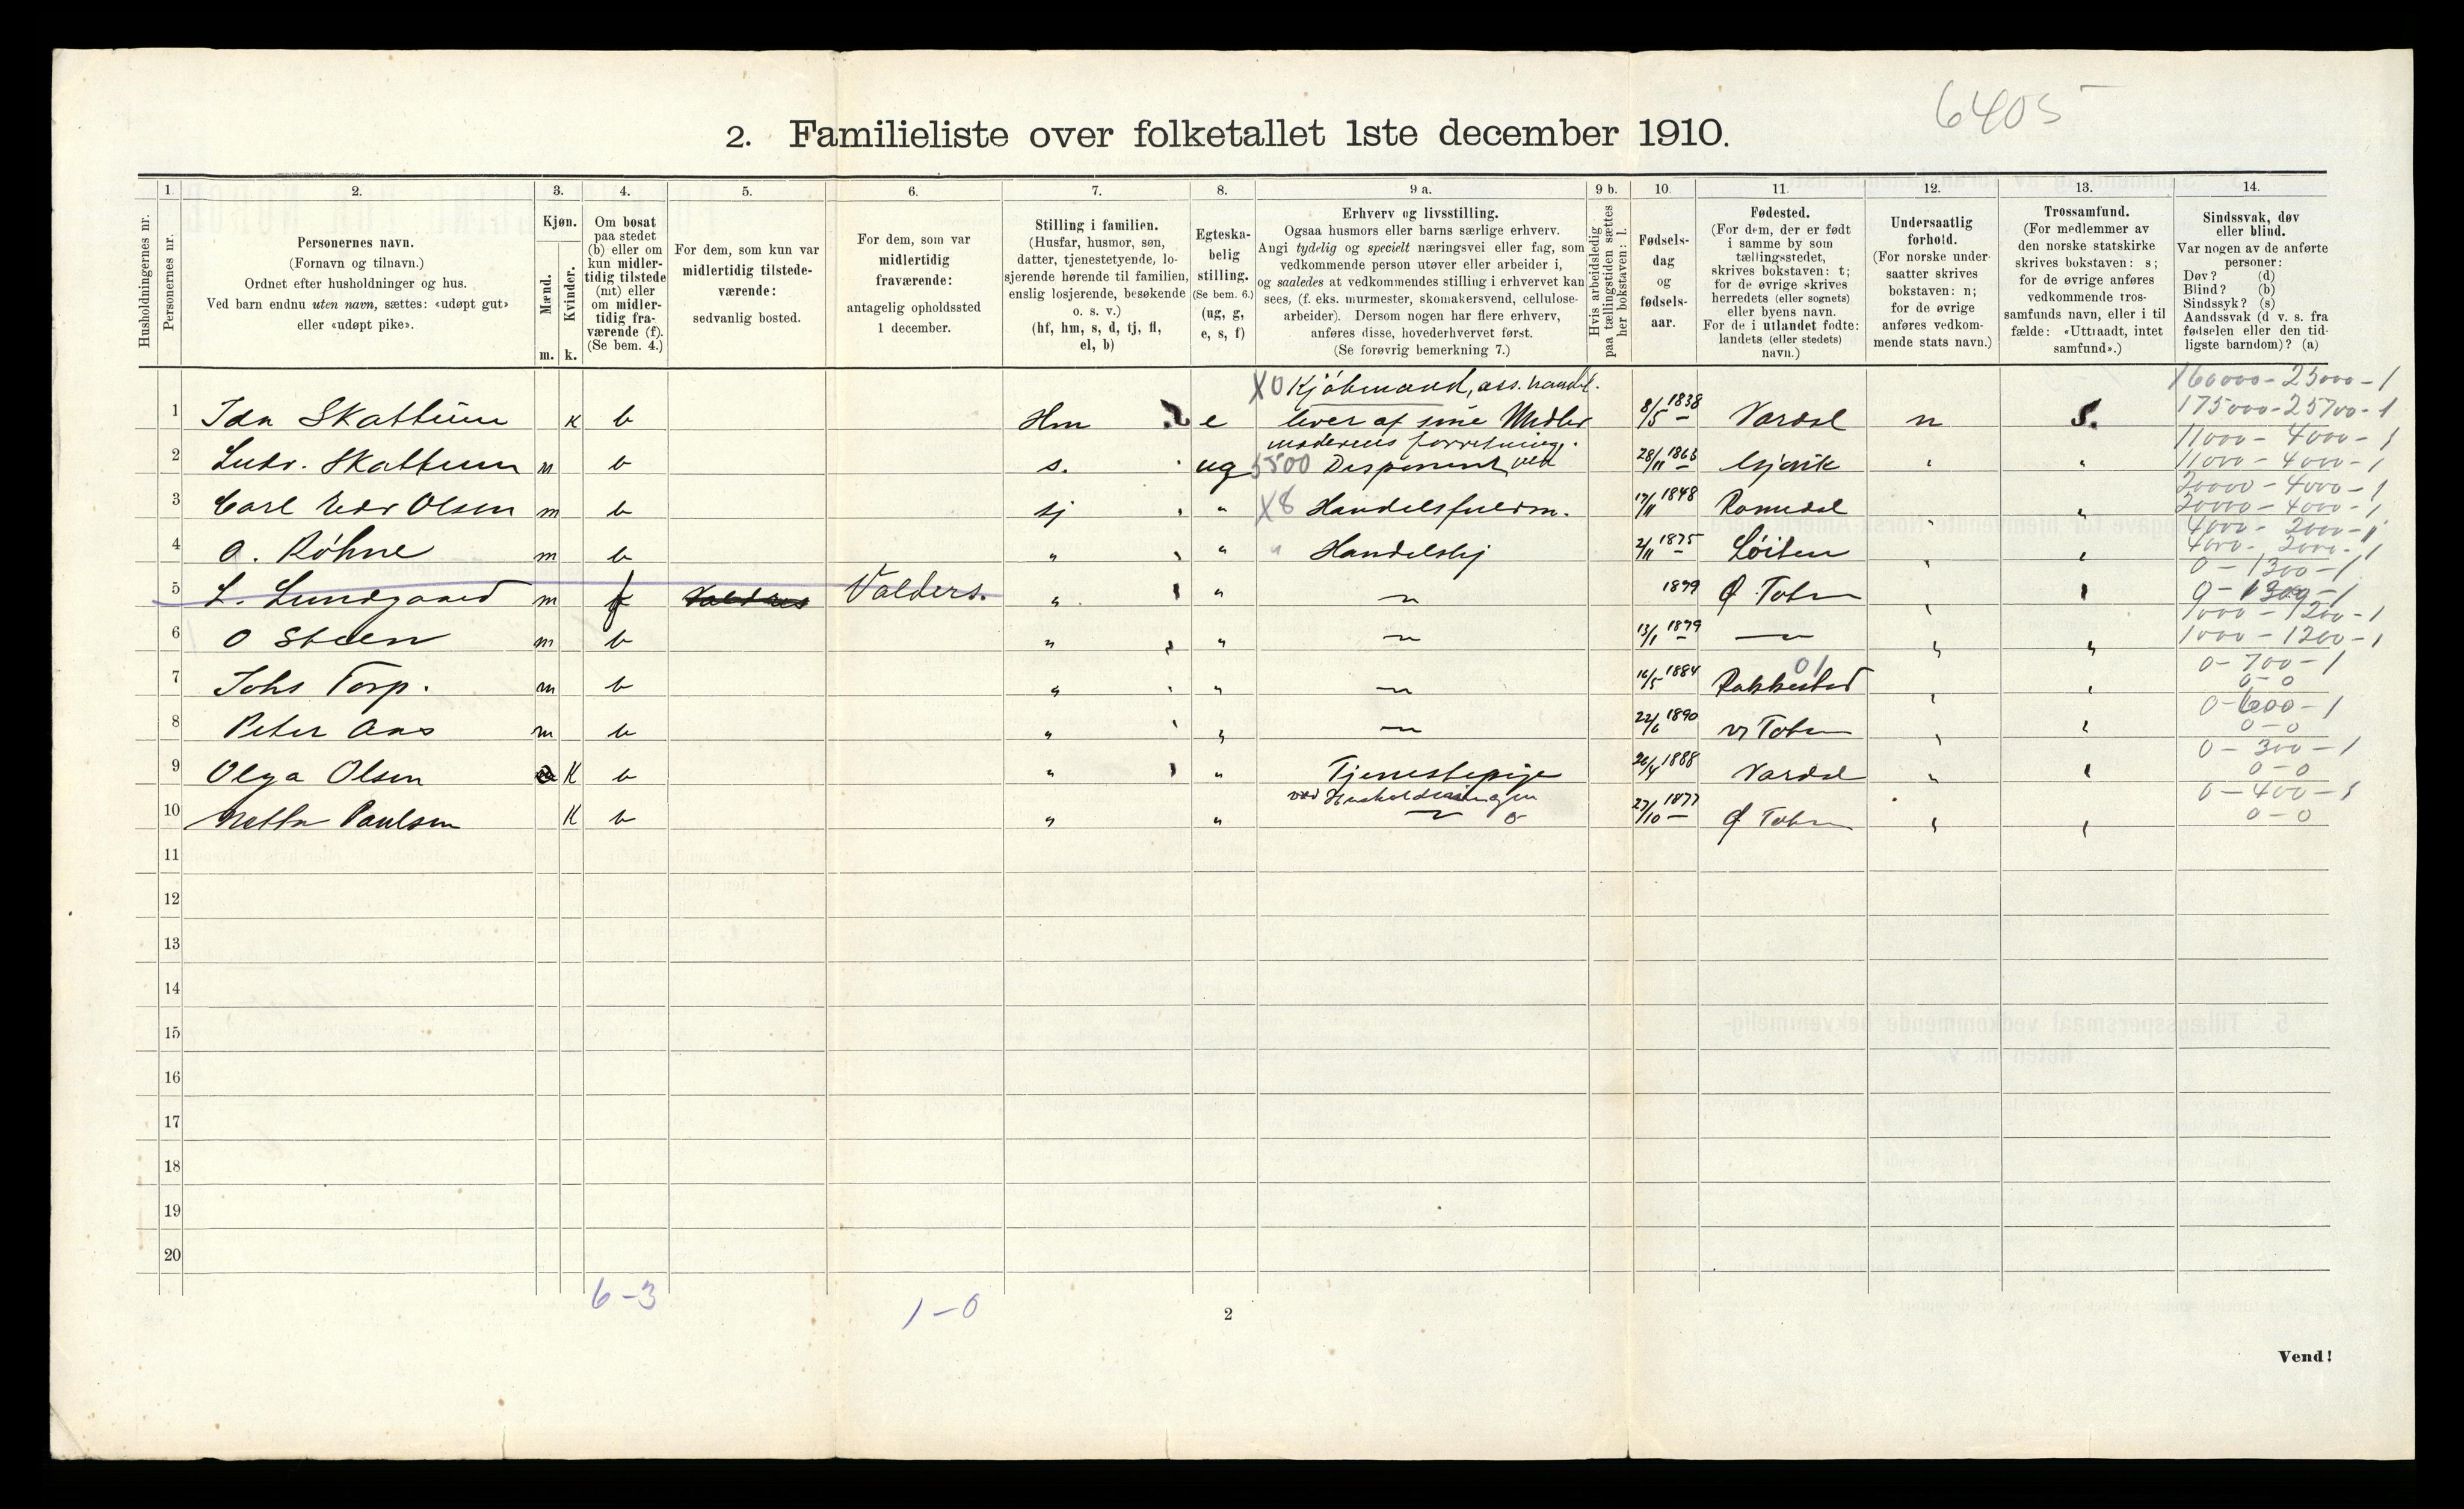 6405
2. Familieliste over folketallet 1ste december 1910.
Husholdningernes nr.
1. Personernes nr.
2. Personernes navn. (Fornavn og tilnavn.) Ordnet efter husholdninger og hus. Ved barn endnu uten navn, sættes: «udøpt gut» eller «udøpt pike».
3. Kjøn. Mænd. m. Kvinder. k.
4. Om bosat paa stedet (b) eller om kun midlertidig tilstede (mt) eller om midlertidig fraværende (f). (Se bem. 4.)
5. For dem, som kun var midlertidig tilstedeværende: sedvanlig bosted.
6. For dem, som var midlertidig fraværende: antagelig opholdssted 1 december.
7. Stilling i familien. (Husfar, husmor, søn, datter, tjenestetyende, losjerende hørende til familien, enslig losjerende, besøkende o. s. v.) (hf, hm, s, d, tj, fl, el, b)
8. Egteskabelig stilling. (Se bem. 6.) (ug, g, e, s, f)
9 a. Erhverv og livsstilling. Ogsaa husmors eller barns særlige erhverv. Angi tydelig og specielt næringsvei eller fag, som vedkommende person utøver eller arbeider i, og saaledes at vedkommendes stilling i erhvervet kan sees, (f. eks. murmester, skomakersvend, cellulosearbeider). Dersom nogen har flere erhverv, anføres disse, hovederhvervet først. (Se forøvrig bemerkning 7.)
9 b. Hvis arbeidsledig paa tællingstiden sættes her bokstaven: l.
10. Fødselsdag og fødselsaar.
11. Fødested. (For dem, der er født i samme by som tællingsstedet, skrives bokstaven: t; for de øvrige skrives herredets (eller sognets) eller byens navn. For de i utlandet fødte: landets (eller stedets) navn.)
12. Undersaatlig forhold. (For norske undersaatter skrives bokstaven: n; for de øvrige anføres vedkommende stats navn.)
13. Trossamfund. (For medlemmer av den norske statskirke skrives bokstaven: s; for de øvrige anføres vedkommende trossamfunds navn, eller i tilfælde: «Uttraadt, intet samfund».)
14. Sindssvak, døv eller blind. Var nogen av de anførte personer: Døv? (d) Blind? (b) Sindssyk? (s) Aandssvak (d. v. s. fra fødselen eller den tidligste barndom)? (a)
X0 Kjöbmand, ass. handel. 160000 - 25000 - 1
1 Ida Skattum k b Hm e lever af sine Midler 8/5 1838 Vardal n S. 175000 - 25700 - 1
moderens forretning. 11000 - 4000 - 1
2 Ludv. Skattum m b s. ug 5500 Disponent ved 28/11 1863 Gjøvik " " 11000 - 4000 - 1
20000 - 4000 - 1
3 Carl Edv Olsen m b tj " X8 Handelsfuldm. 17/11 1848 Romedal " " 20000 - 4000 - 1
4000 - 2000 - 1
4 O. Röhne m b " " " Handelsbtj 2/11 1875 Löiten " " 4000 - 2000 - 1
0 - 1300 - 1
5 L. Lundgaard m f Valders. " " " 1879 Ø. Toten " " 0 - 1300 - 1
1000 - 1200 - 1
6 O Steen m b " " " 13/1 1879 " " " 1000 - 1200 - 1
01 0 - 700 - 1
7 Johs Torp. m b " " " 16/5 1884 Rakkestad " " 0 - 0
0 - 600 - 1
8 Peter Aas m b " " " 22/6 1890 V Toten " " 0 - 0
0 - 300 - 1
9 Olga Olsen K b " " Tjenestepige 20/4 1888 Vardal " " 0 - 0
ved Husholdningen 0 - 400 - 1
10 Netta Paulsen K b " " " 0 27/10 1877 Ø Toten " " 0 - 0
11
12
13
14
15
16
17
18
19
20
6 - 3
1 - 0
2
Vend!